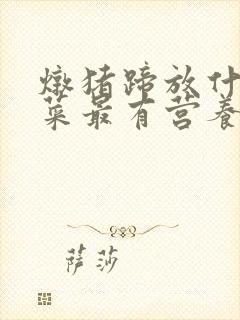 炖猪蹄放什
菜最有营养
萨莎